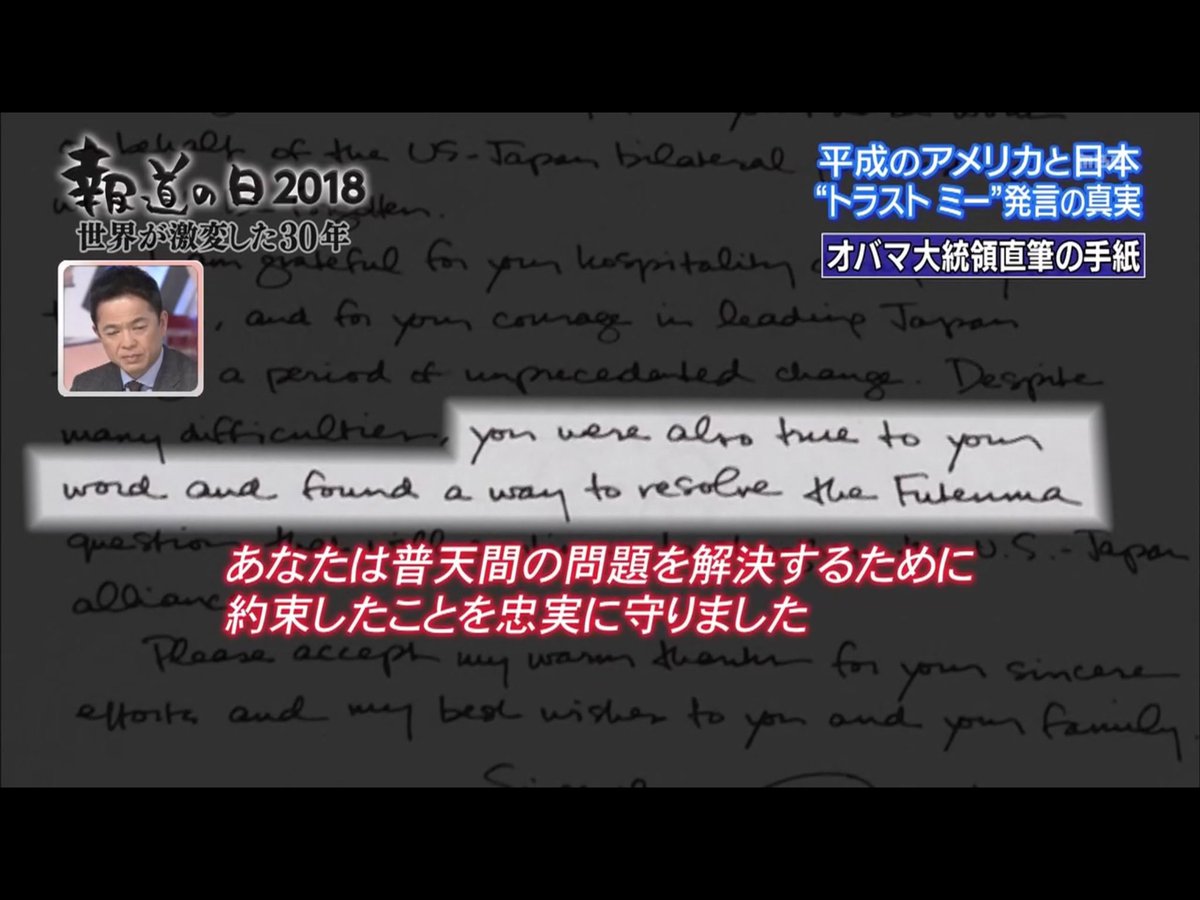 behalf of the US-Japan bilateral
報道の日2018
世界が激変した30年
平成のアメリカと日本
“トラスト ミー”発言の真実
オバマ大統領直筆の手紙
grateful for your hospitality
, and for your courage in leading Japan
a period of unprecedented change. Despite
many difficulties, you were also true to your
word and found a way to resolve the Futenma
question U.S.-Japan
alliance
あなたは普天間の問題を解決するために
約束したことを忠実に守りました
Please accept my warm thanks for your sincere
efforts and my best wishes to you and your family